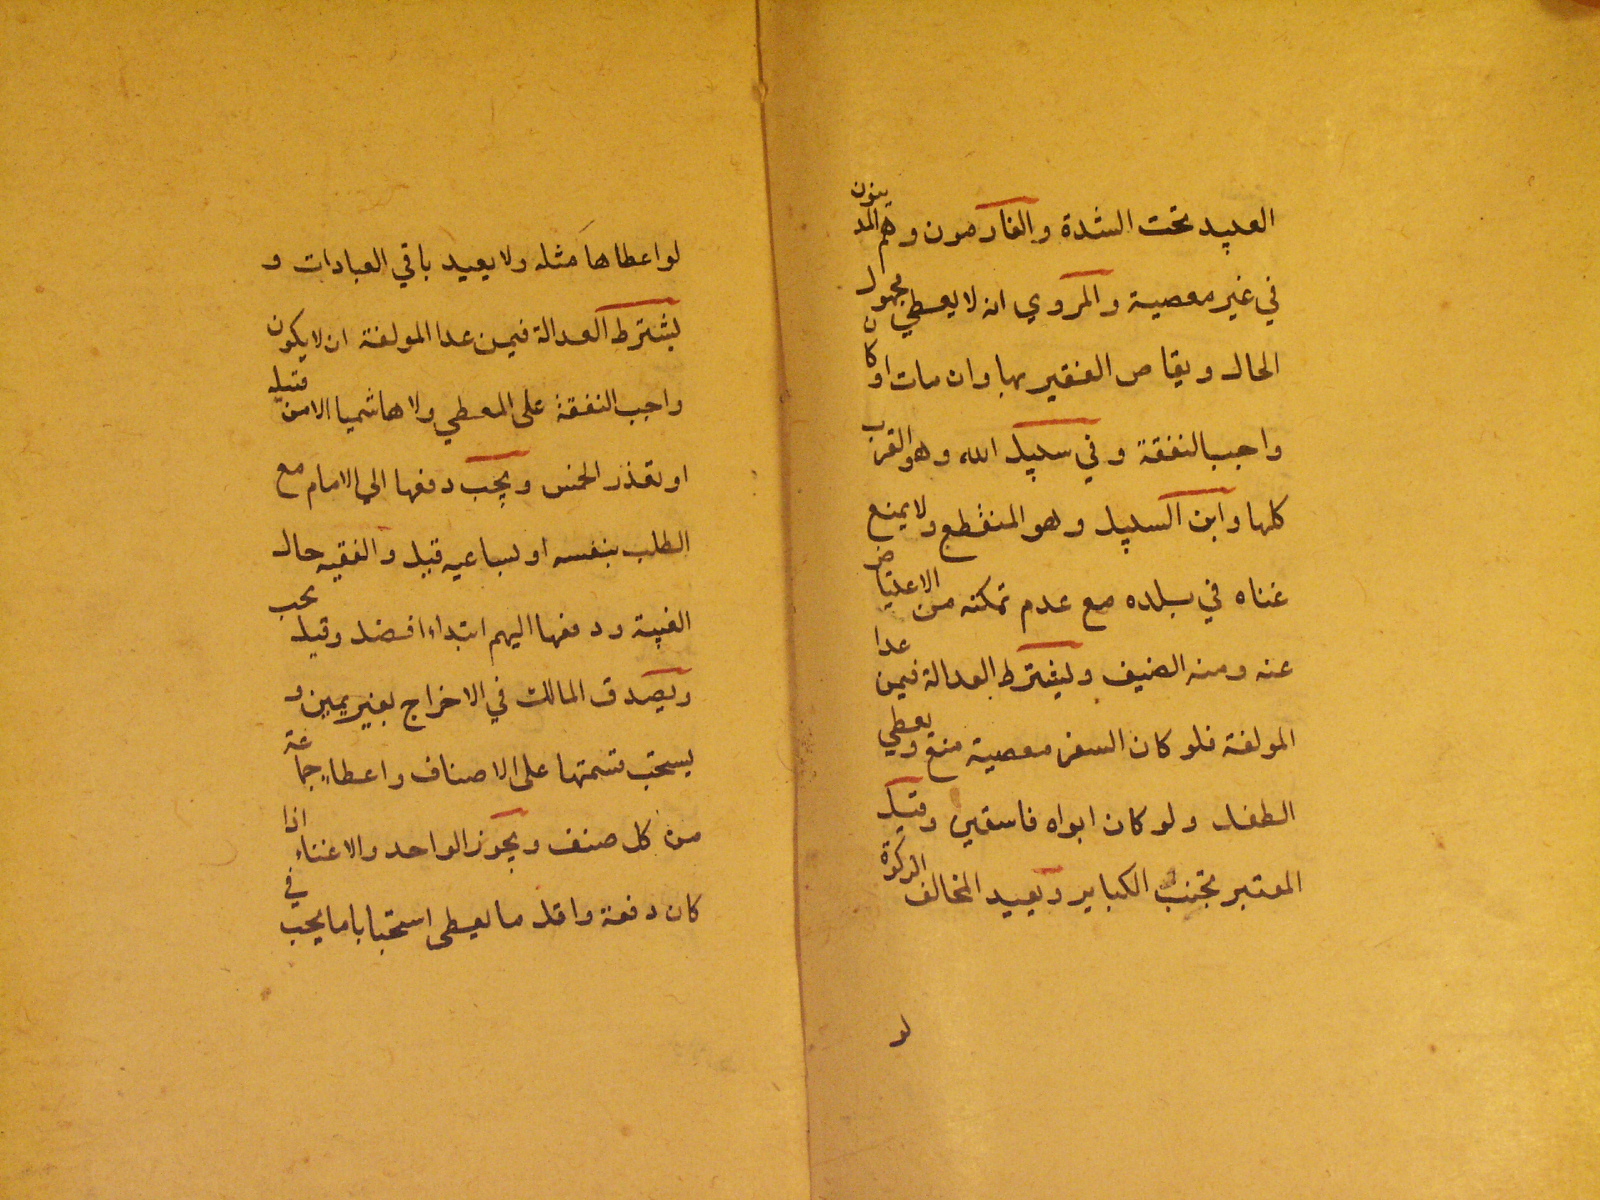 العبيد تحت الشدة والغارمون وهم المدينون
في غير معصية والمروي انه لا يعطي مجهول
الحال ويقاص الفقير بها وان مات او كان
واجب النفقة وفي سبيل الله وهو القرب
كلها وابن السبيل وهو المنقطع ولا يمنع
غناه في بلده مع عدم تمكنه من الاعتياض
عنه ومنه الضيف ويشترط العدالة فيمن عدا
المولفة فلو كان السفر معصية منع ويعطي
الطفل ولو كان ابواه فاسقين وقيل
المعتبر تجنب الكباير ويعيد المخالف الزكوة
لو
لو اعطاها مثله ولا يعيد باقي العبادات و
يشترط العدالة فيمن عدا المولفة ان لا يكون
واجب النفقة على المعطي ولا هاشميا الا من قبيله
او تعذر الخمس ويجب دفعها الي الامام مع
الطلب بنفسه او بساعيه قيل والفقيه حال
الغيبة ودفعها اليهم ابتداء افضل وقيل يجب
ويصدق المالك في الاخراج بغير يمين و
يستحب قسمتها على الاصناف واعطاء جماعة
من كل صنف ويجوز الواحد والاغناء اذا
كان دفعة واقل ما يعطى استحبابا ما يجب في